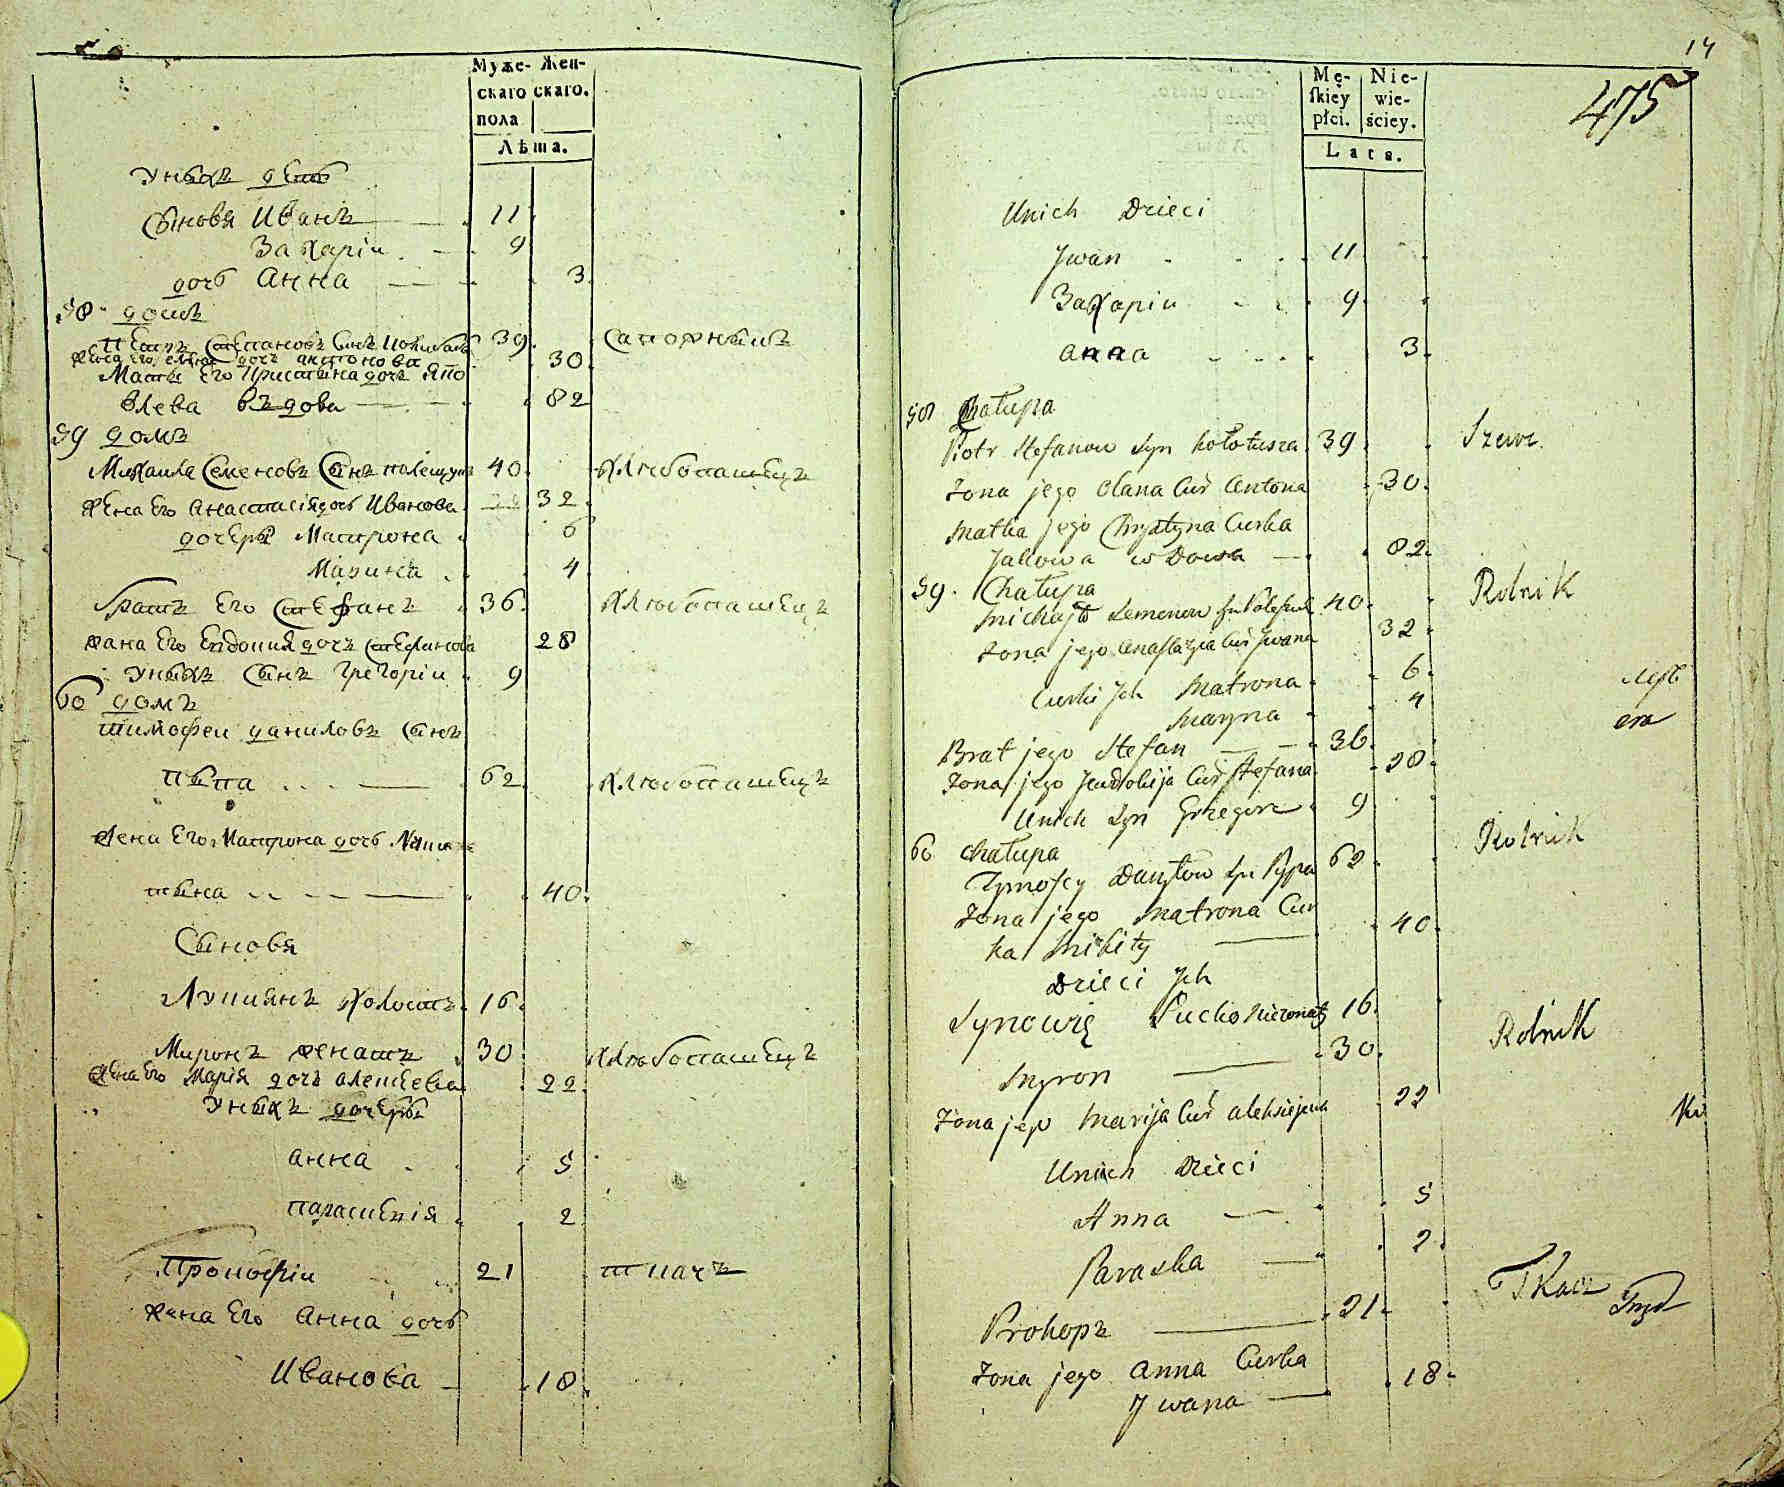 Муже- Жен-
скаго скаго.
пола
Лѣта.
Уныхъ дети
Сыновя Иванъ 11
Захаріи 9
дочь Анна 3
58 домъ
Петръ Степановъ Сынъ 39 Сапожныкъ
жена Его дочь антонова 30
Мать Его Христына дочь Яко
влева въдова 82
59 домъ
Михаила Семеновъ Сынъ 40 Хлюбопашецъ
жена Его Анастасія дочь Иванова 32
дочеры Матрона 6
Марина 4
братъ Его Стефанъ 36 Хлюбопашецъ
жана Его Евдокия дочъ Стефанова 28
Уныхъ Сынъ Григоріи 9
60 домъ
тимофеи даниловъ Сынъ
пыпа 62 Хлюбопашецъ
жена Его Матрона дочь Мыки
тына 40
Сыновя
Лукиянъ холостъ 16
Миронъ женатъ 30 Хлюбопашецъ
жена Его Марія дочъ алексеева 22
Уныхъ дочеры
анна 5
параскевія 2
Прокофіи 21 ткачъ
жена Его Анна дочь
Иванова 18
14
475
Mę- Nie-
skiéy wie-
płci. ściey.
Lata.
Unich Dzieci
Jwan 11
Захаріи 9
анна 3
58 Chałupa
Piotr Stefanow Syn Kołotusza 39 Szewc.
Żona jego Olana Curˀ Antona 30
Matka jego Chrystyna Curka
Jakowa wDowa 82
59. Chałupa
Michajło Semenow Sn Poleszuk 40 Rolnik
Żona jego Anastazia Curˀ Jwana 32
Curki Jch Matrona 6
Maryna 4
Brat jego Stefan 36
Żona jego Jewdokija Curˀ Stefana 28
Unich Syn Grzegorz 9
60 Chałupa Rolnik
Tymofey Danyłow Sn Pypa 62
Żona jego Matrona Cur
ka Mikity 40
Dzieci Jch
Synowię 16
Myron 30 Rolnik
Żona jego Marija Curˀ Aleksiejewa 22
Unich Dzieci
Anna 5
Paraska 2
Prokopъ 21 Tkacz
Żona jego Anna Curka
Jwana 18